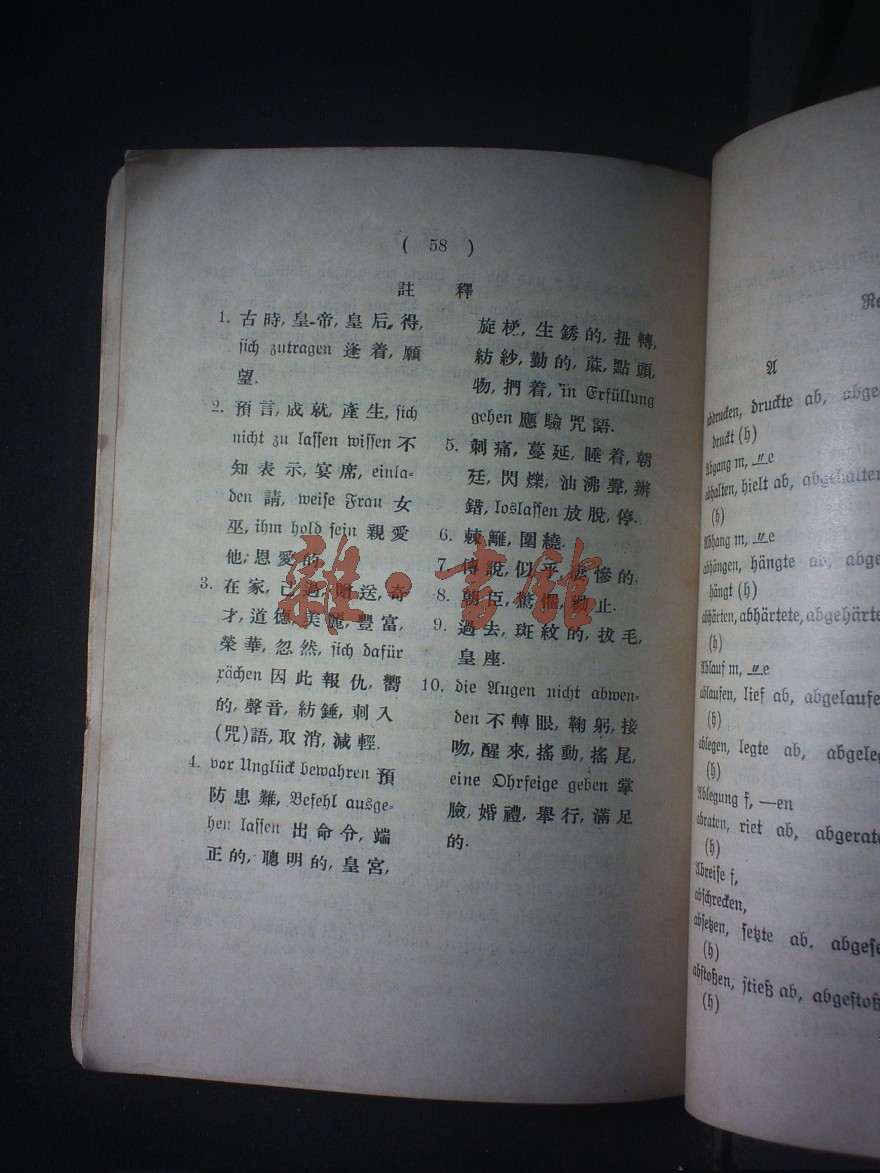 ( 58 )
註 釋
1. 古時, 皇帝, 皇后, 得,
sich zutragen 逢着, 願
望.
2. 預言, 成就, 產生, sich
nicht zu lassen wissen 不
知表示, 宴席, einla-
den 請, weise Frau 女
巫, ihm hold sein 親愛
他, 恩愛的
3. 在家, 己過, 贈送, 奇
才, 道德, 美麗, 豐富,
榮華, 忽然, sich dafür
rächen 因此報仇, 嚮
的, 聲音, 紡錘, 刺入
(咒)語, 取消, 減輕.
4. vor Unglück bewahren 預
防患難, Befehl ausge-
hen lassen 出命令, 端
正的, 聰明的, 皇宮,
旋梯, 生銹的, 扭轉,
紡紗, 勤的, 蔴, 點頭,
物, 捫着, in Erfüllung
gehen 應驗咒語.
5. 刺痛, 蔓延, 睡着, 朝
廷, 閃爍, 油沸聲, 辦
錯, loslassen 放脫, 停.
6. 棘籬, 圍繞.
7. 傳說, 似乎, 悽慘的.
8. 朝臣, 勸止.
9. 過去, 斑紋的, 拔毛,
皇座.
10. die Augen nicht abwen-
den 不轉眼, 鞠躬, 接
吻, 醒來, 搖動, 搖尾,
eine Ohrfeige geben 掌
臉, 婚禮, 舉行, 滿足
的.
雜·書館
Re
A
abdrucken, druckte ab, abge-
druckt (h)
Abgang m, ⸚e
abhalten, hielt ab, abgehalten
(h)
Abhang m, ⸚e
abhängen, hängte ab, abge-
hängt (h)
abhärten, abhärtete, abgehärte
(h)
Ablauf m, ⸚e
ablaufen, lief ab, abgelaufe
(h)
ablegen, legte ab, abgeleg
(h)
Ablegung f, —en
abraten, riet ab, abgerate
(h)
Abreise f,
abschrecken,
absetzen, setzte ab, abgese
(h)
abstoßen, stieß ab, abgestoß
(h)